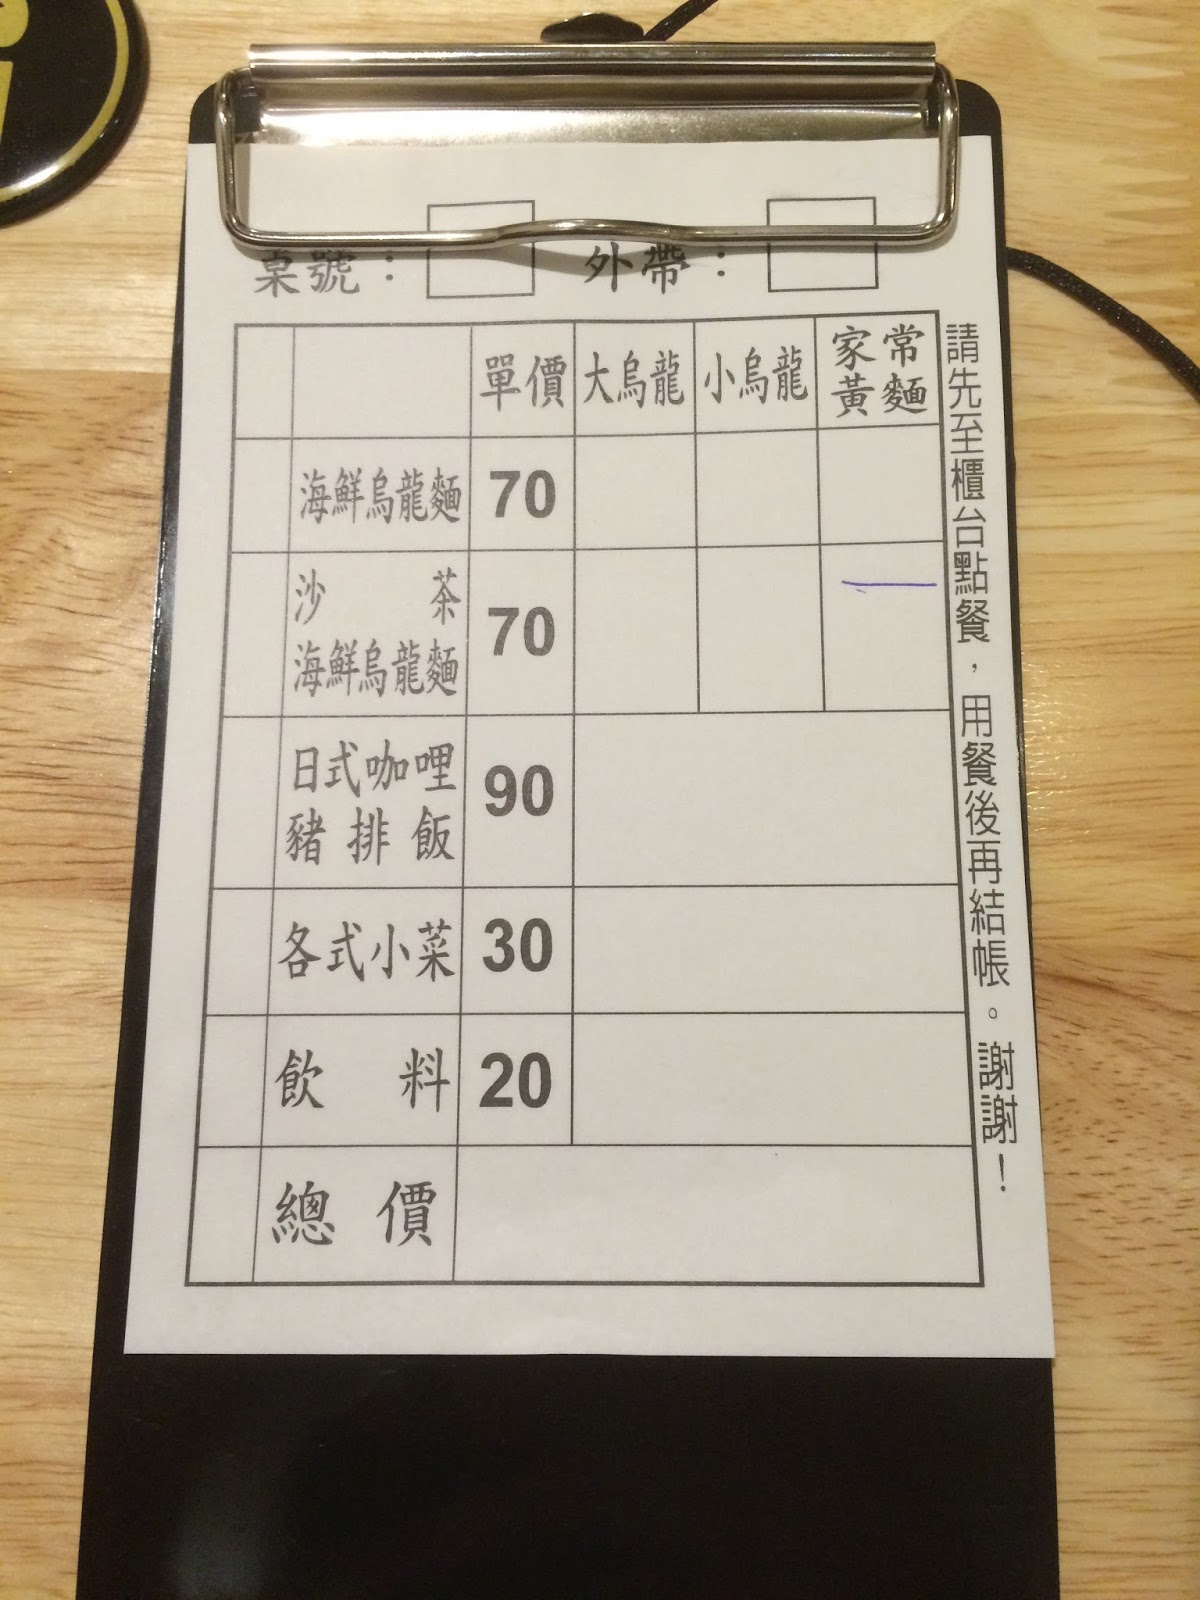 桌號： 外帶：
單價 大烏龍 小烏龍 家常黃麵
海鮮烏龍麵 70
沙茶海鮮烏龍麵 70
日式咖哩豬排飯 90
各式小菜 30
飲料 20
總價
請先至櫃台點餐，用餐後再結帳。謝謝！